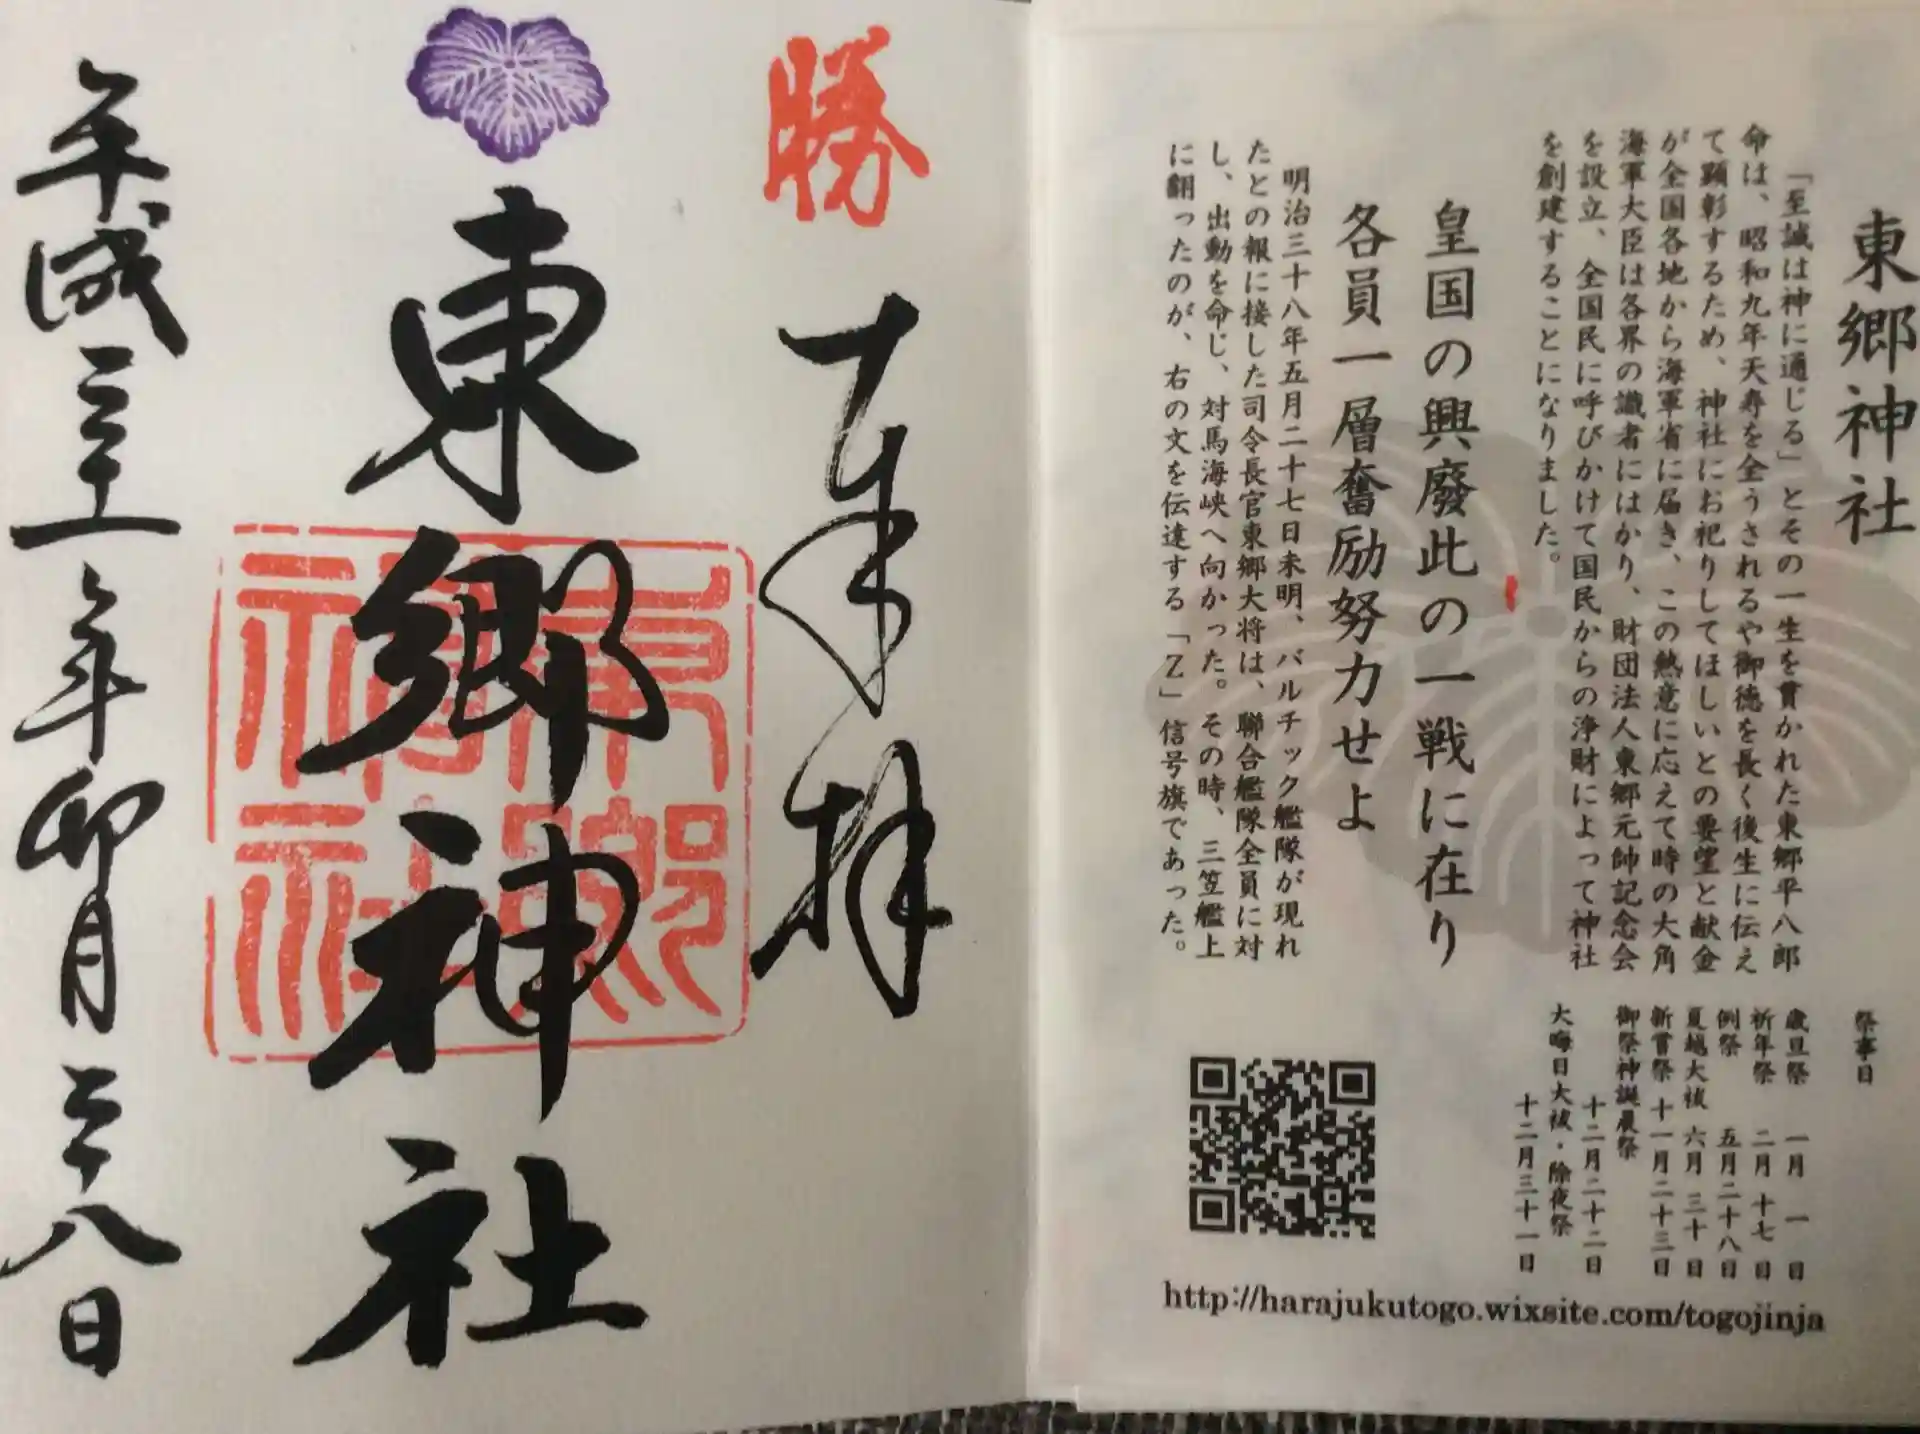 東郷神社
「至誠は神に通じる」とその一生を貫かれた東郷平八郎
命は、昭和九年天寿を全うされるや御徳を長く後生に伝え
て顕彰するため、神社にお祀りしてほしいとの要望と献金
が全国各地から海軍省に届き、この熱意に応えて時の大角
海軍大臣は各界の識者にはかり、財団法人東郷元帥記念会
を設立、全国民に呼びかけて国民からの浄財によって神社
を創建することになりました。
皇国の興廃此の一戦に在り
各員一層奮励努力せよ
明治三十八年五月二十七日未明、バルチック艦隊が現れ
たとの報に接した司令長官東郷大将は、聯合艦隊全員に対
し、出動を命じ、対馬海峡へ向かった。その時、三笠艦上
に翻ったのが、右の文を伝達する「Z」信号旗であった。
祭事日
歳旦祭 一月 一日
祈年祭 二月 十七日
例祭 五月二十八日
夏越大祓 六月 三十日
新嘗祭 十一月二十三日
御祭神誕辰祭 十二月二十二日
大晦日大祓・除夜祭 十二月三十一日
http://harajukutogo.wixsite.com/togojinja
勝
奉拝
東郷神社
東郷神社
平成三十一年卯月二十八日